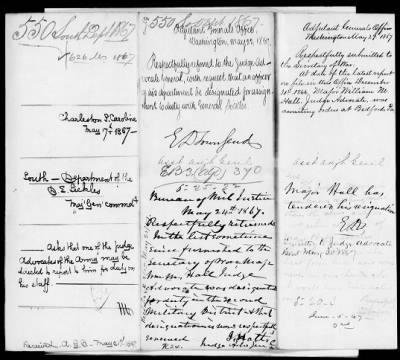 550 South Dept 1867
A 626 Ms 1867
Charleston S. Carolina
May 7th 1867—
South – Department of the
D. E. Sickles
Maj. Gen. commd'g
Asks that one of the Judge
Advocates of the Army may be
directed to report to him for duty on
his staff.
550 South Dept 1867.
Adjutant General's Office,
Washington, May 22, 1867.
Respectfully referred to the Judge Ad-
vocate General, with request that an officer
of his department be designated for assign-
ment to duty with General Sickles.
E. D. Townsend
Asst Adjt Genl
5-25-67
Bureau of Mil. Justice
May 24th 1867.
Respectfully returned.
In the list sometime
since furnished to the
Secretary of War Major
Wm. M. Hall Judge
Advocate was designated
for duty in the second
Military District & that
designation is now respectfully
renewed
J. Holt
Judge Adv. Gen'l
Adjutant General's Office
Washington May 29th 1867.
Respectfully submitted to
the Secretary of War.
At date of the latest report
on file in this office December
Major William M.
Hall, Judge Advocate, was
awaiting orders at Bedford, Pa
Asst Adjt Genl
Major Hall has
tendered his resignation
Judge Advocate